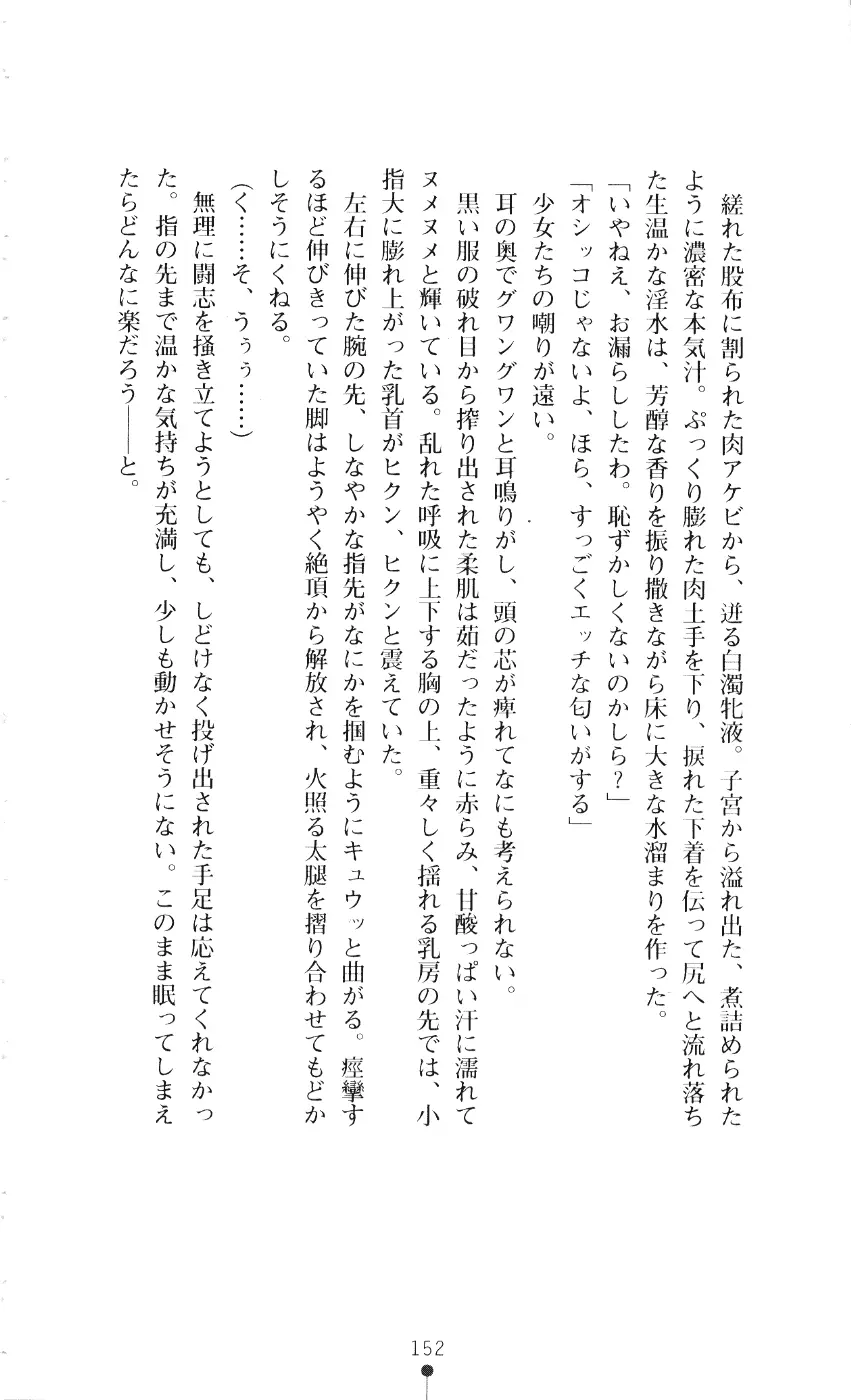 縒れた股布に割られた肉アケビから、迸る白濁牝液。子宮から溢れ出た、煮詰められた
ように濃密な本気汁。ぷっくり膨れた肉土手を下り、捩れた下着を伝って尻へと流れ落ち
た生温かな淫水は、芳醇な香りを振り撒きながら床に大きな水溜まりを作った。
「いやねえ、お漏らししたわ。恥ずかしくないのかしら？」
「オシッコじゃないよ、ほら、すっごくエッチな匂いがする」
少女たちの嘲りが遠い。
耳の奥でグワングワンと耳鳴りがし、頭の芯が痺れてなにも考えられない。
黒い服の破れ目から搾り出された柔肌は茹だったように赤らみ、甘酸っぱい汗に濡れて
ヌメヌメと輝いている。乱れた呼吸に上下する胸の上、重々しく揺れる乳房の先では、小
指大に膨れ上がった乳首がヒクン、ヒクンと震えていた。
左右に伸びた腕の先、しなやかな指先がなにかを掴むようにキュウッと曲がる。痙攣す
るほど伸びきっていた脚はようやく絶頂から解放され、火照る太腿を摺り合わせてもどか
しそうにくねる。
(く……そ、うぅぅ……)
無理に闘志を掻き立てようとしても、しどけなく投げ出された手足は応えてくれなかっ
た。指の先まで温かな気持ちが充満し、少しも動かせそうにない。このまま眠ってしまえ
たらどんなに楽だろう――と。
152